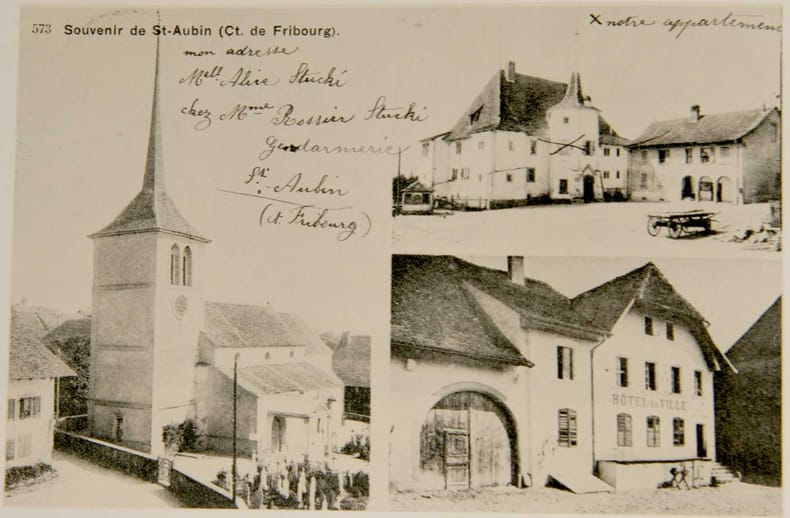 573 Souvenir de St-Aubin (Ct. de Fribourg).
x notre appartement
mon adresse
Mell Alice Stucki
chez Mme Rossier Stucki
Gendarmerie
St. Aubin
(ct. Fribourg)
HÔTEL de VILLE